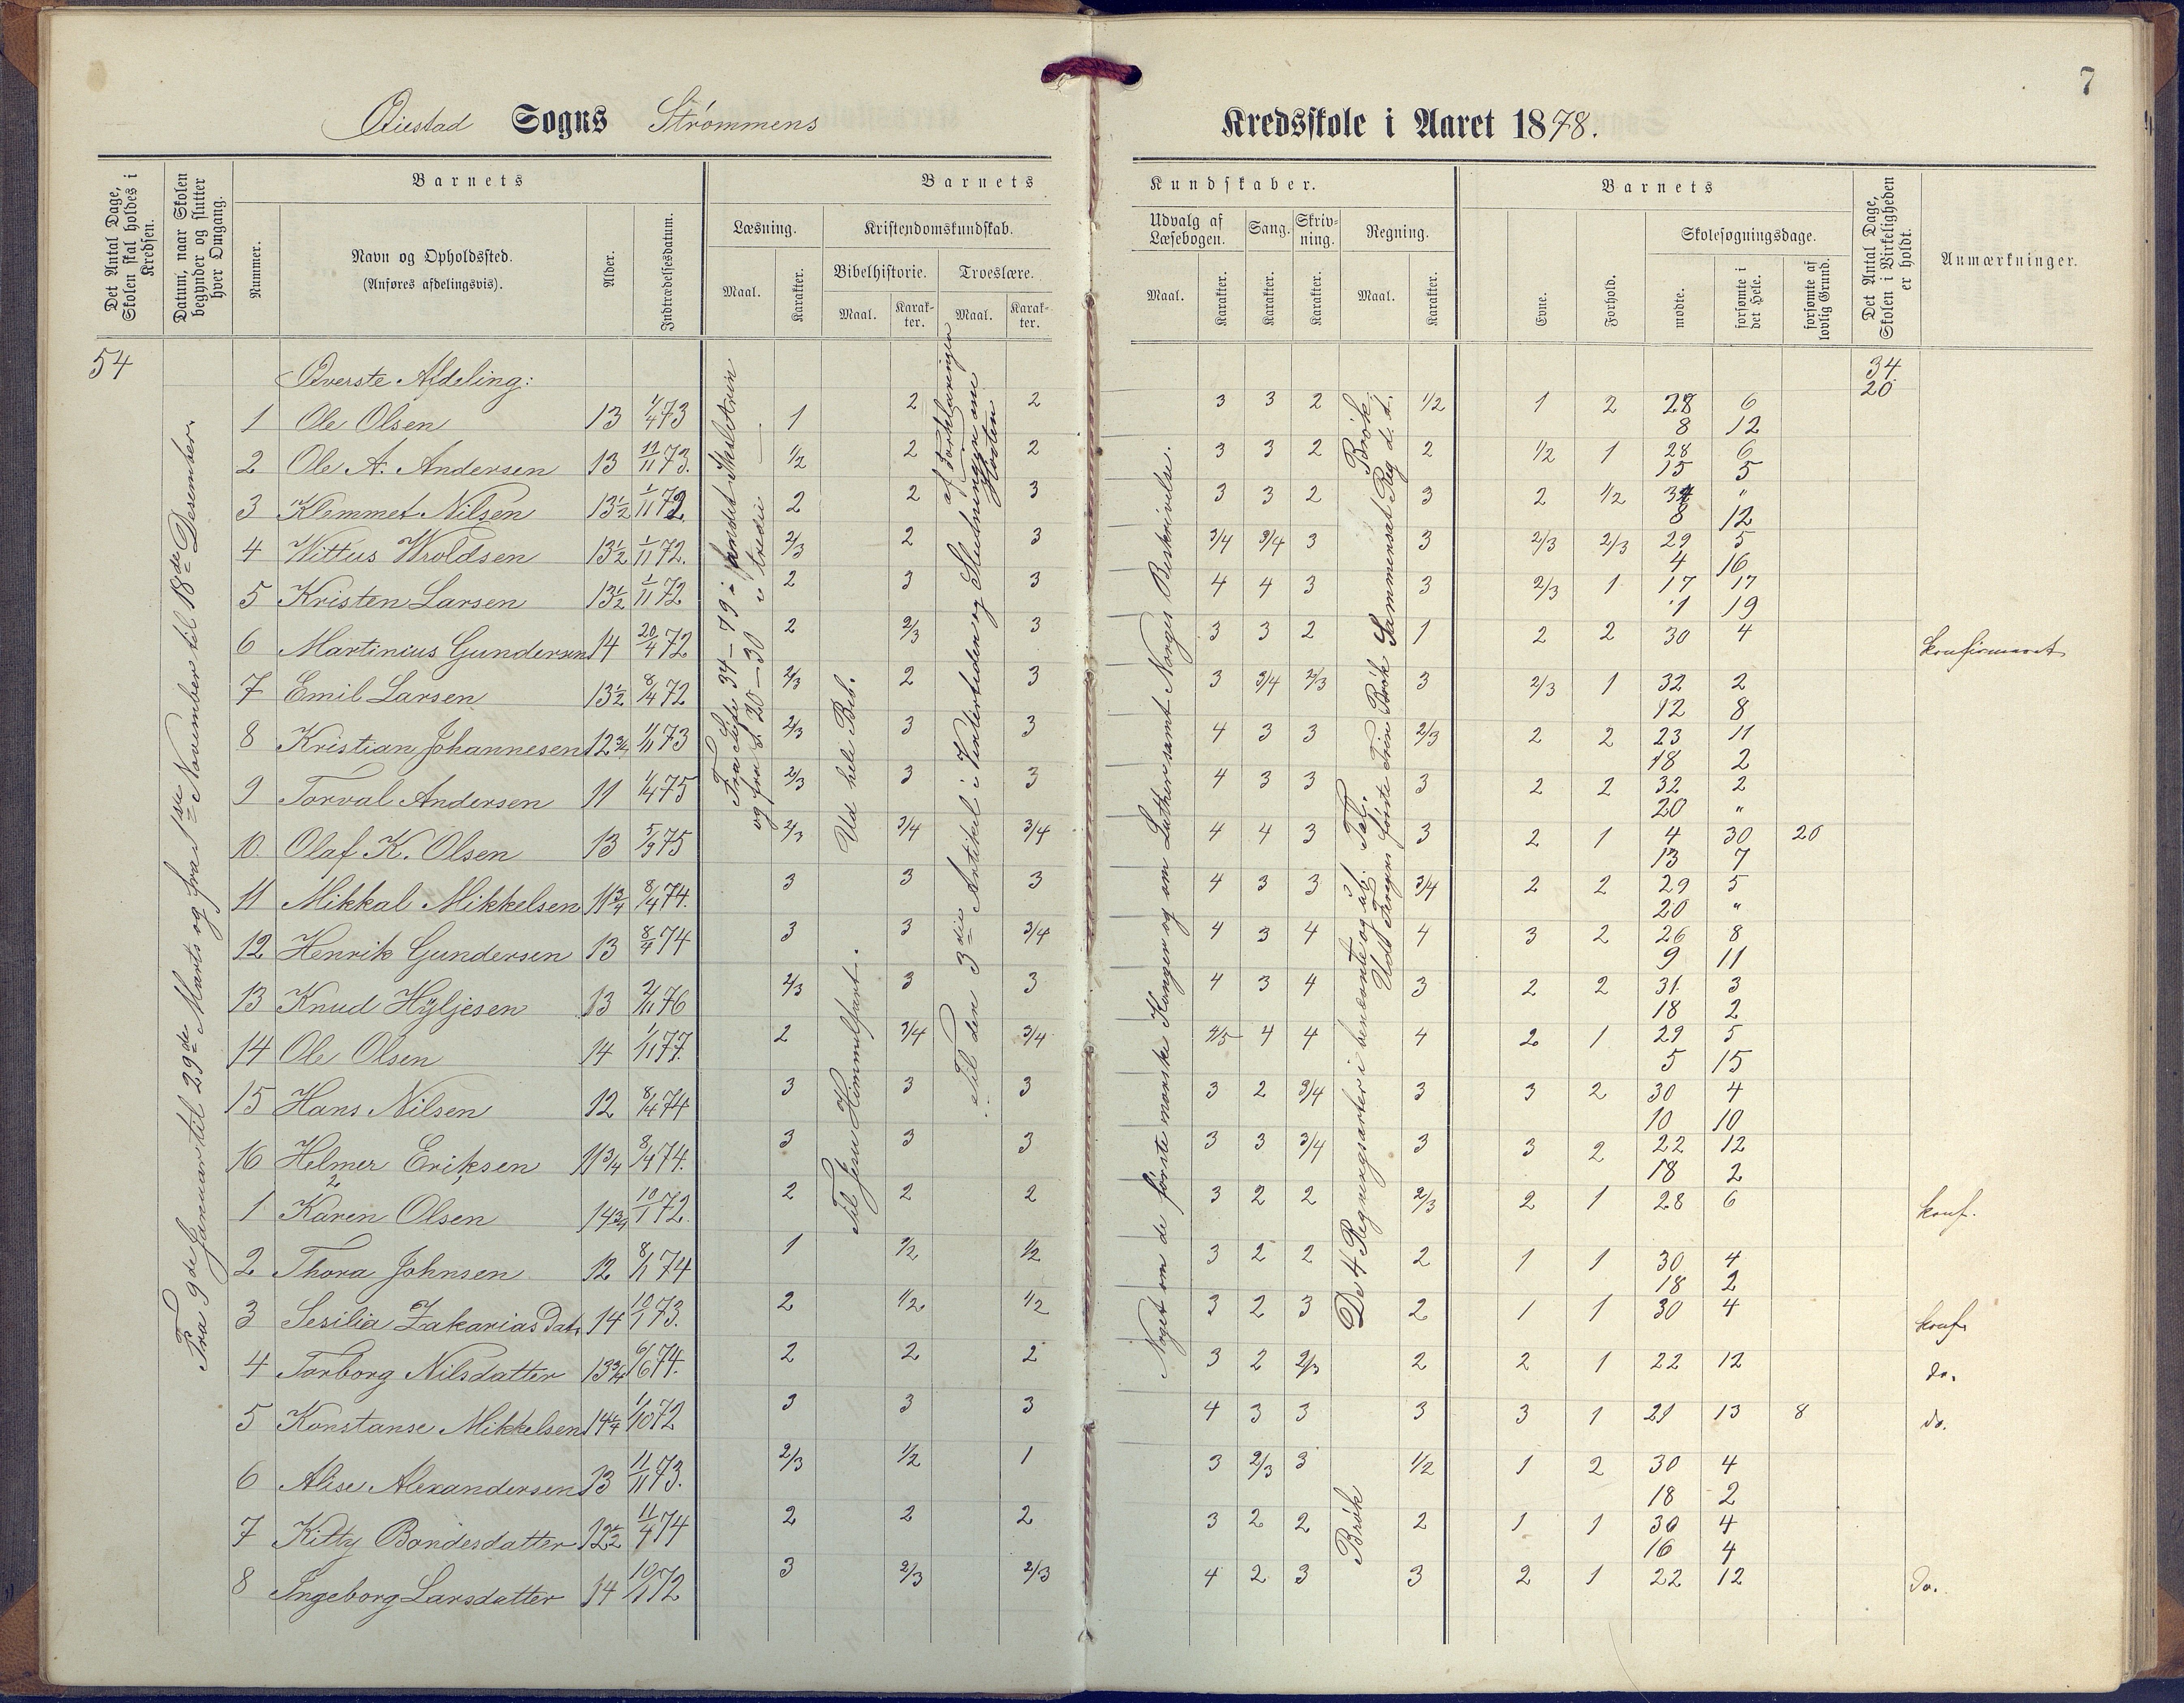 7
Øiestad Sogns Strømmens Kredsskole i Aaret 1878.
Det Antal Dage, Skolen skal holdes i Kredsen.
Datum, naar Skolen begynder og slutter hver Omgang.
Barnets
Nummer.
Navn og Opholdssted.
(Anføres afdelingsvis).
Alder.
Indtrædelsesdatum.
Barnets Kundskaber.
Læsning.
Maal.
Karakter.
Kristendomskundskab.
Bibelhistorie.
Maal.
Karakter.
Troeslære.
Maal.
Karakter.
Udvalg af Læsebogen.
Maal.
Karakter.
Sang.
Karakter.
Skrivning.
Karakter.
Regning.
Maal.
Karakter.
Barnets
Evne.
Forhold.
Skolesøgningsdage.
mødte.
forsømte i det Hele.
forsømte af lovlig Grund.
Det Antal Dage, Skolen i Virkeligheden er holdt.
Anmærkninger.
54
Fra 9de Januar til 29de Marts og fra 1ste November til 18de Desember.
Øverste Afdeling:
34
20
Fra Side 34 – 79 i
og fra S. 20 – 30 i tredie
Ud hele Bib.
Til Jesu Himmelfart.
Til den 3die Artikel i Vintertiden og Slutningen om Høsten
af Forklaringen
Noget om de første norske Konger og om Luther samt Norges Beskrivelse.
De 4 Regningsarter i benævnte og ub. Tal.
Brøk Sammensat Reg d. t.
Brøk
Brøk
1 Ole Olsen 13 1/4 73 1 2 2 3 3 2 1/2 1 2 28 6
8 12
2 Ole A. Andersen 13 11/11 73. 1/2 2 2 3 3 2 2 1/2 1 28 6
15 5
3 Klemmet Nilsen 13½ 1/11 72. 2 2 3 3 3 2 3 2 1/2 34 "
8 12
4 Wittus Wroldsen 13½ 1/11 72. 2/3 2 3 3/4 3/4 3 3 2/3 2/3 29 5
4 16
5 Kristen Larsen 13½ 1/11 72 2 3 3 4 4 3 3 2/3 1 17 17
1 19
6 Martinius Gundersen 14 20/4 72 2 2/3 3 3 3 2 1 2 2 30 4 konfirmeret
7 Emil Larsen 13½ 8/4 72 2/3 2 3 3 3/4 2/3 3 2/3 1 32 2
12 8
8 Kristian Johannesen 12¾ 1/11 73 2/3 3 3 4 3 3 2/3 2 2 23 11
18 2
9 Torval Andersen 11 1/4 75 2/3 3 3 4 3 3 3 2 2 32 2
20 "
10. Olaf K. Olsen 13 5/3 75 2/3 3/4 3/4 4 4 3 3 2 1 4 30 20
13 7
11 Mikkal Mikkelsen 11¾ 8/4 74. 3 3 3 4 3 3 3/4 2 2 29 5
20 "
12 Henrik Gundersen 13 8/4 74 3 3 3/4 4 3 4 4 3 2 26 8
9 11
13 Knud Hÿljesen 13 2/11 76 2/3 3 3 4 3 4 3 2 2 31 3
18 2
14 Ole Olsen 14 1/11 77. 2 3/4 3/4 4/5 4 4 4 2 1 29 5
5 15
15 Hans Nilsen 12 8/4 74 3 3 3 3 2 3/4 3 3 2 30 4
10 10
16 Helmer Eriksen 11¾ 8/4 74. 3 3 3 3 3 3/4 3 3 2 22 12
18 2
1 Karen Olsen 14¾ 10/1 72. 2 2 2 3 2 2 2/3 2 1 28 6 konf.
2 Thora Johnsen 12 8/1 74 1 1/2 1/2 3 2 2 2 1 1 30 4
18 2
3 Sesilia Zakarias Dat. 14 10/1 73. 2 1/2 1/2 3 2 3 2 1 1 30 4 konf.
4 Torborg Nilsdatter 13¾ 6/6 74. 2 2 2 3 2 2/3 2 2 1 22 12 do.
5 Konstanse Mikkelsen 14¼ 1/10 72 3 3 3 4 3 3 3 3 1 21 13 8 do.
6 Alise Alexandersen 13 11/11 73. 2/3 1/2 1 3 2/3 3 1/2 1 2 30 4
18 2
7 Kitty Bondesdatter 12½ 11/4 74 2 2 2 3 2 2 2 1 1 30 4
16 4
8 Ingeborg Larsdatter 14 10/1 72 3 2/3 2/3 4 2 3 3 2 1 22 12 do.